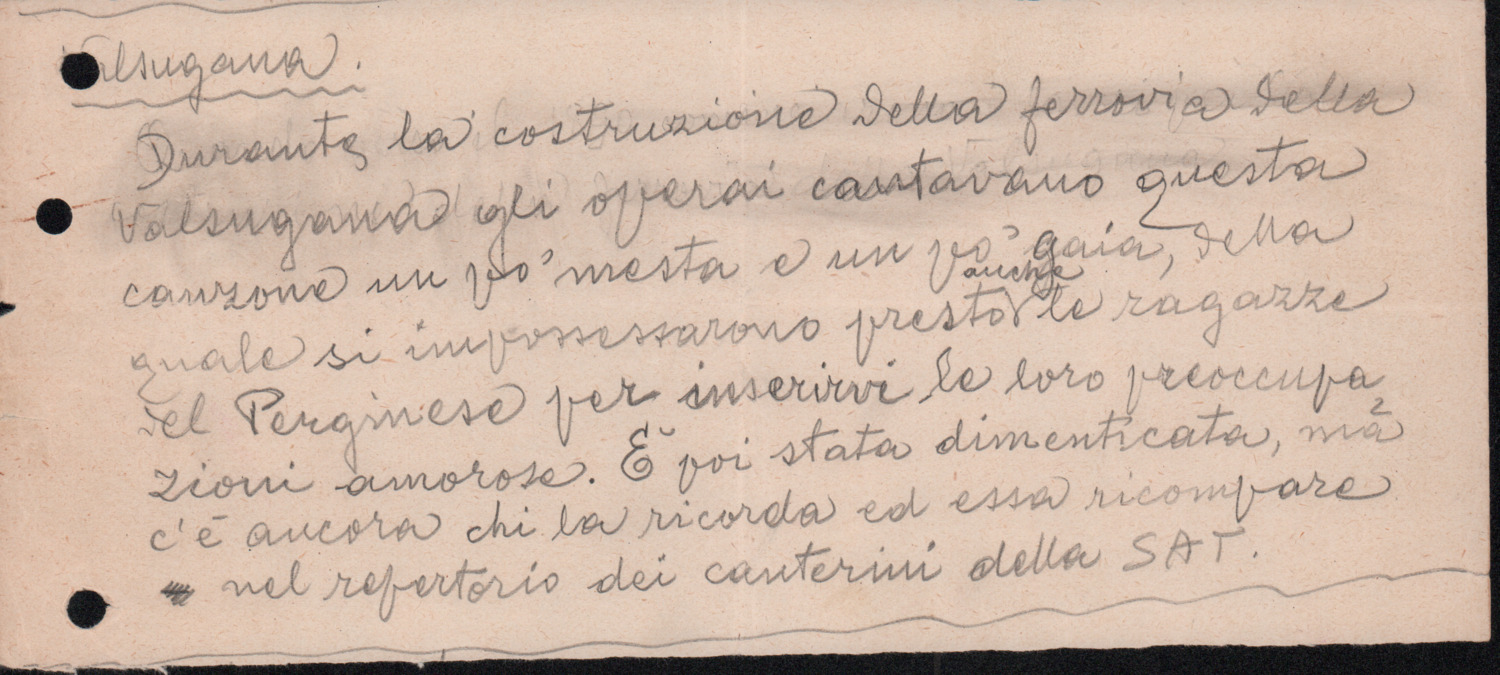 Valsugana.
Durante la costruzione della ferrovia della
Valsugana gli operai cantavano questa
canzone un po' mesta e un po' gaia, della
quale si impossessarono presto anche le ragazze
del Perginese per inserirvi le loro preoccupa
zioni amorose. È poi stata dimenticata, ma
c'è ancora chi la ricorda ed essa ricompare
nel repertorio dei canterini della SAT.